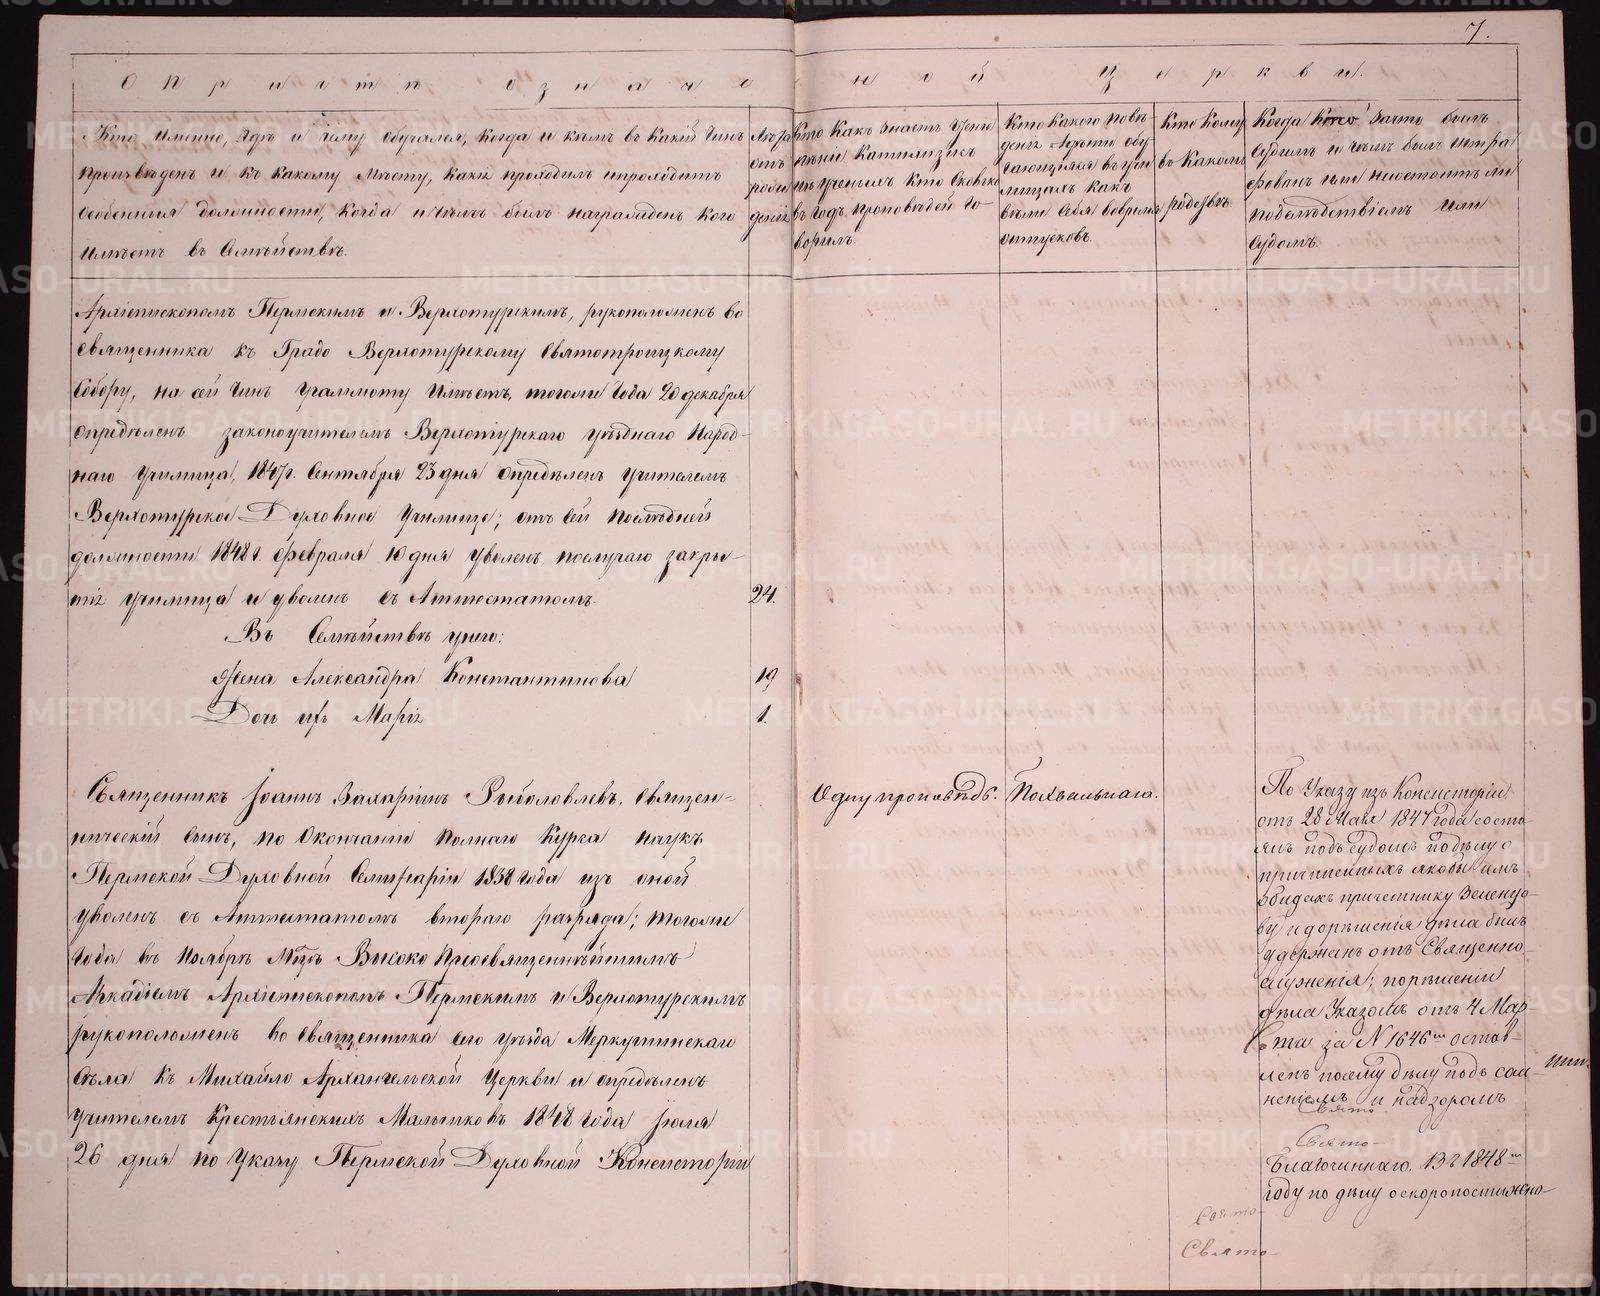 7.
О причтѣ означенной церкви.
Кто Именно, гдѣ и чему обучался, когда и кѣмъ въ какій чинъ
произвѣденъ и къ какому мѣсту, какія проходилъ ипроходитъ
особенныя должности, когда и чѣмъ былъ награжденъ кого
Имѣетъ въ Семѣйствѣ.
Лѣта
отъ
рож
денія
Кто Какъ знаетъ чтеніе
пѣніе Катихизисъ
въ Годъ проповѣдей го-
ворилъ.
Кто какого пове-
денія
лищахъ какъ
вѣли себя вовремя
отпусковъ.
Кто Кому
въ Какомъ
родствѣ
Когда Кто зачто былъ
Судимъ и чѣмъ былъ штра
фованъ или несостоитъ ли
подслѣдствіемъ или
Судомъ.
Архіепископомъ Пермскимъ и Верхотурскимъ, рукоположенъ во
священника къ Градо Верхотурскому Святотроицкому
Собору, на сей чинъ грамоту Имѣетъ, тогоже года 20 декабря
опредѣленъ законоучителемъ Верхотурскаго уѣзднаго Народ-
наго Училища, 1847г. Сентября 23 дня опредѣленъ учителемъ
Верхотурское Духовное Училище; отъ сей послѣдней
должности 1848 г. февраля 10 дня уволенъ, послучаю закры-
тія училища и уволенъ съ Аттестатомъ.
24.
Въ Семѣйствѣ унего:
Жена Александра Константинова
19
Дочь ихъ Марія
1.
Священникъ Іоаннъ Захаріинъ Рыболовлевъ, священ-
ническій сынъ, по Окончаніи полнаго Курса наукъ
Пермской Духовной Семинаріи 1838 года изъ оной
уволенъ съ Аттестатомъ втораго разряда; тогоже
года въ Ноябрѣ Мцѣ Высоко Преосвященнѣйшимъ
Аркадіемъ Архіепископомъ Пермскимъ и Верхотурскимъ
рукоположенъ во священника сего уѣзда Меркушинскаго
Села къ Михайло Архангельской Церкви и опредѣленъ
Учителемъ Крестьянскихъ Мальчиковъ 1848 года Іюля
26 дня по Указу Пермской Духовной Консисторіи
Одну проповѣдь.
Похвальнаго.
По Указу изъ Консисторіи
отъ 28 Мая 1847 года состо-
ялъ подъ судомъ подѣлу о
причиненныхъ якобы имъ
обидахъ причетнику Зеленцо-
ву и дорѣшенія дѣла былъ
удержанъ отъ Священно-
служенія; порѣшеніи
дѣла Указомъ отъ 4 Мар-
та за N 1646 остав-
ленъ посему дѣлу подъ сом-
нѣніемъ и надзоромъ
Свято
Свято-
Благочиннаго. Въ 1848
году по дѣлу оскоропостижно
Свято-
Свято-